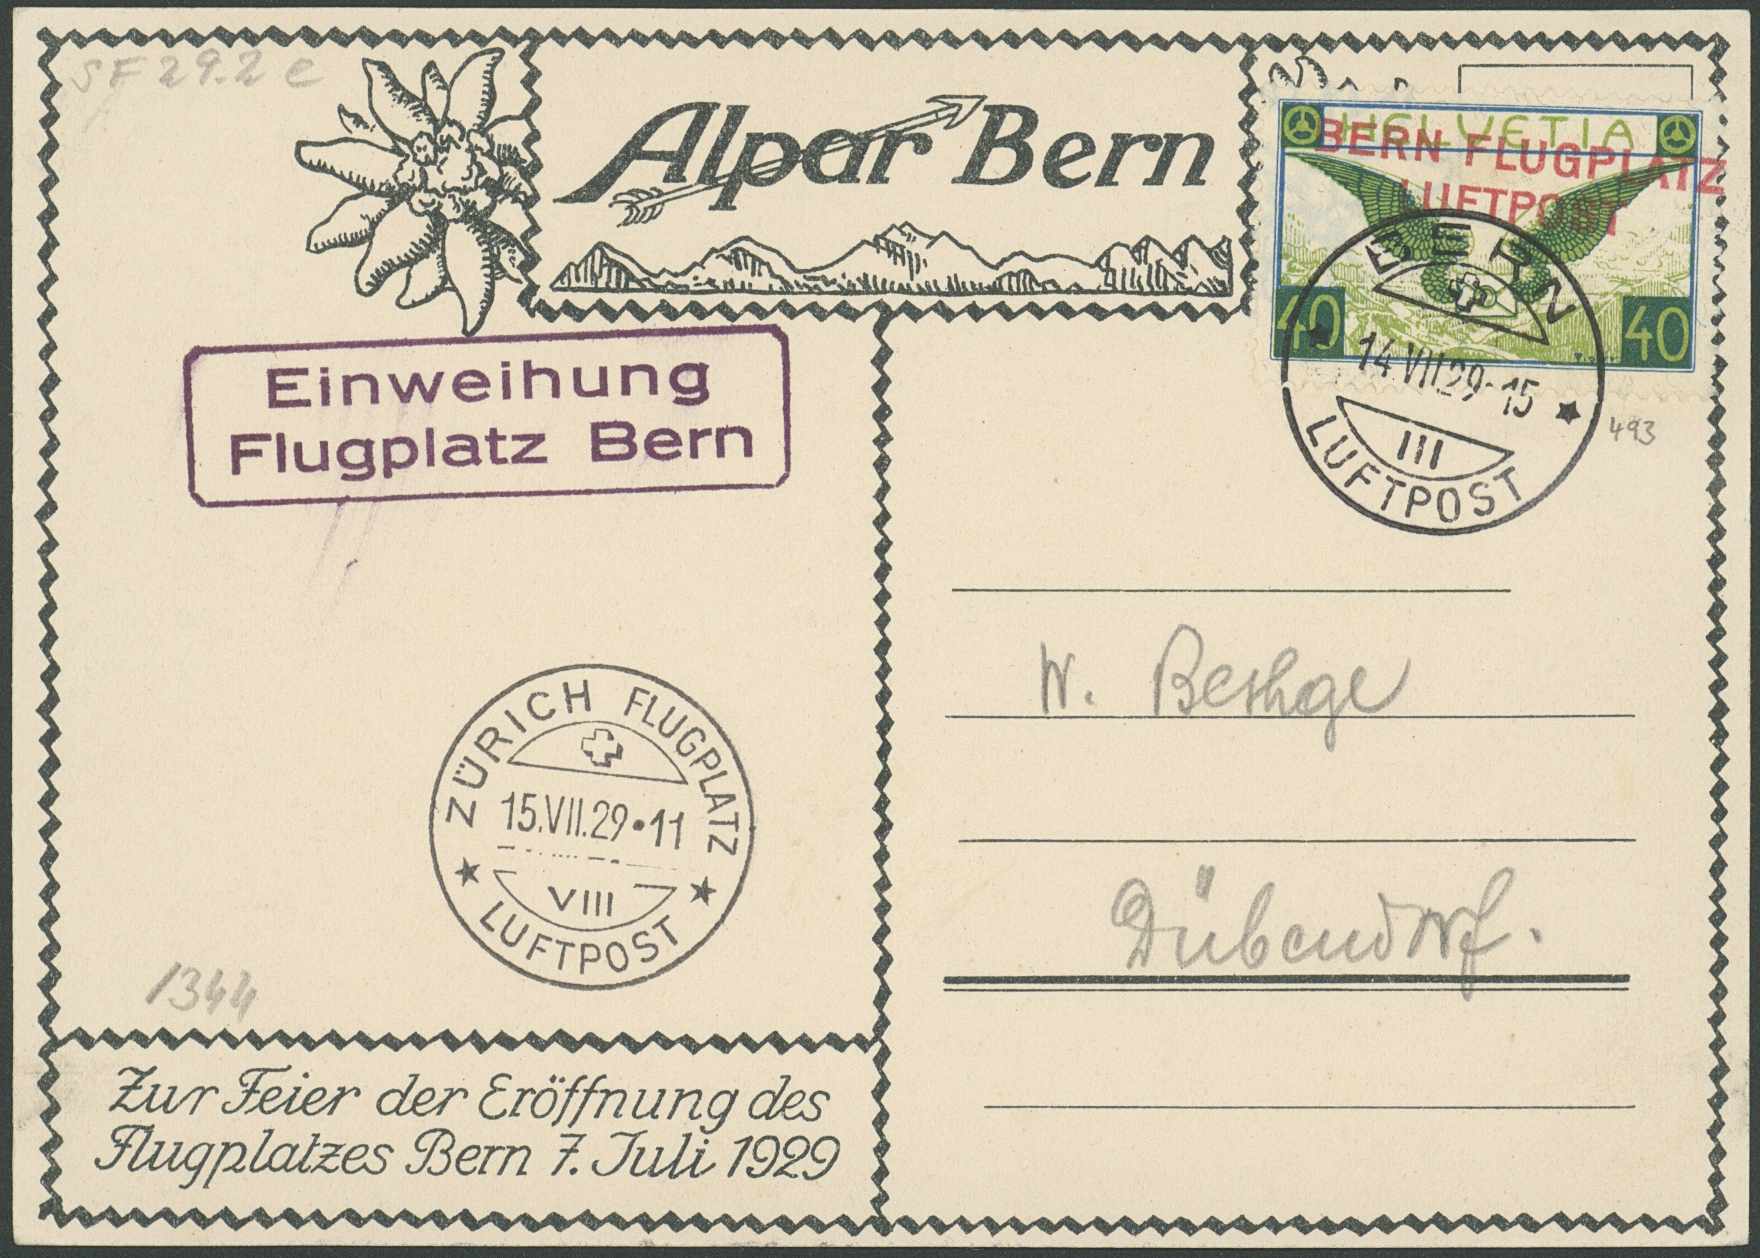 SF 29.2 e
Alpar Bern
HELVETIA
BERN FLUGPLATZ
LUFTPOST
40 40
BERN
14.VII.29-15
III
LUFTPOST
493
Einweihung
Flugplatz Bern
ZÜRICH FLUGPLATZ
15.VII.29•11
VIII
LUFTPOST
W. Bethge
Dübendorf.
1344
Zur Feier der Eröffnung des
Flugplatzes Bern 7. Juli 1929